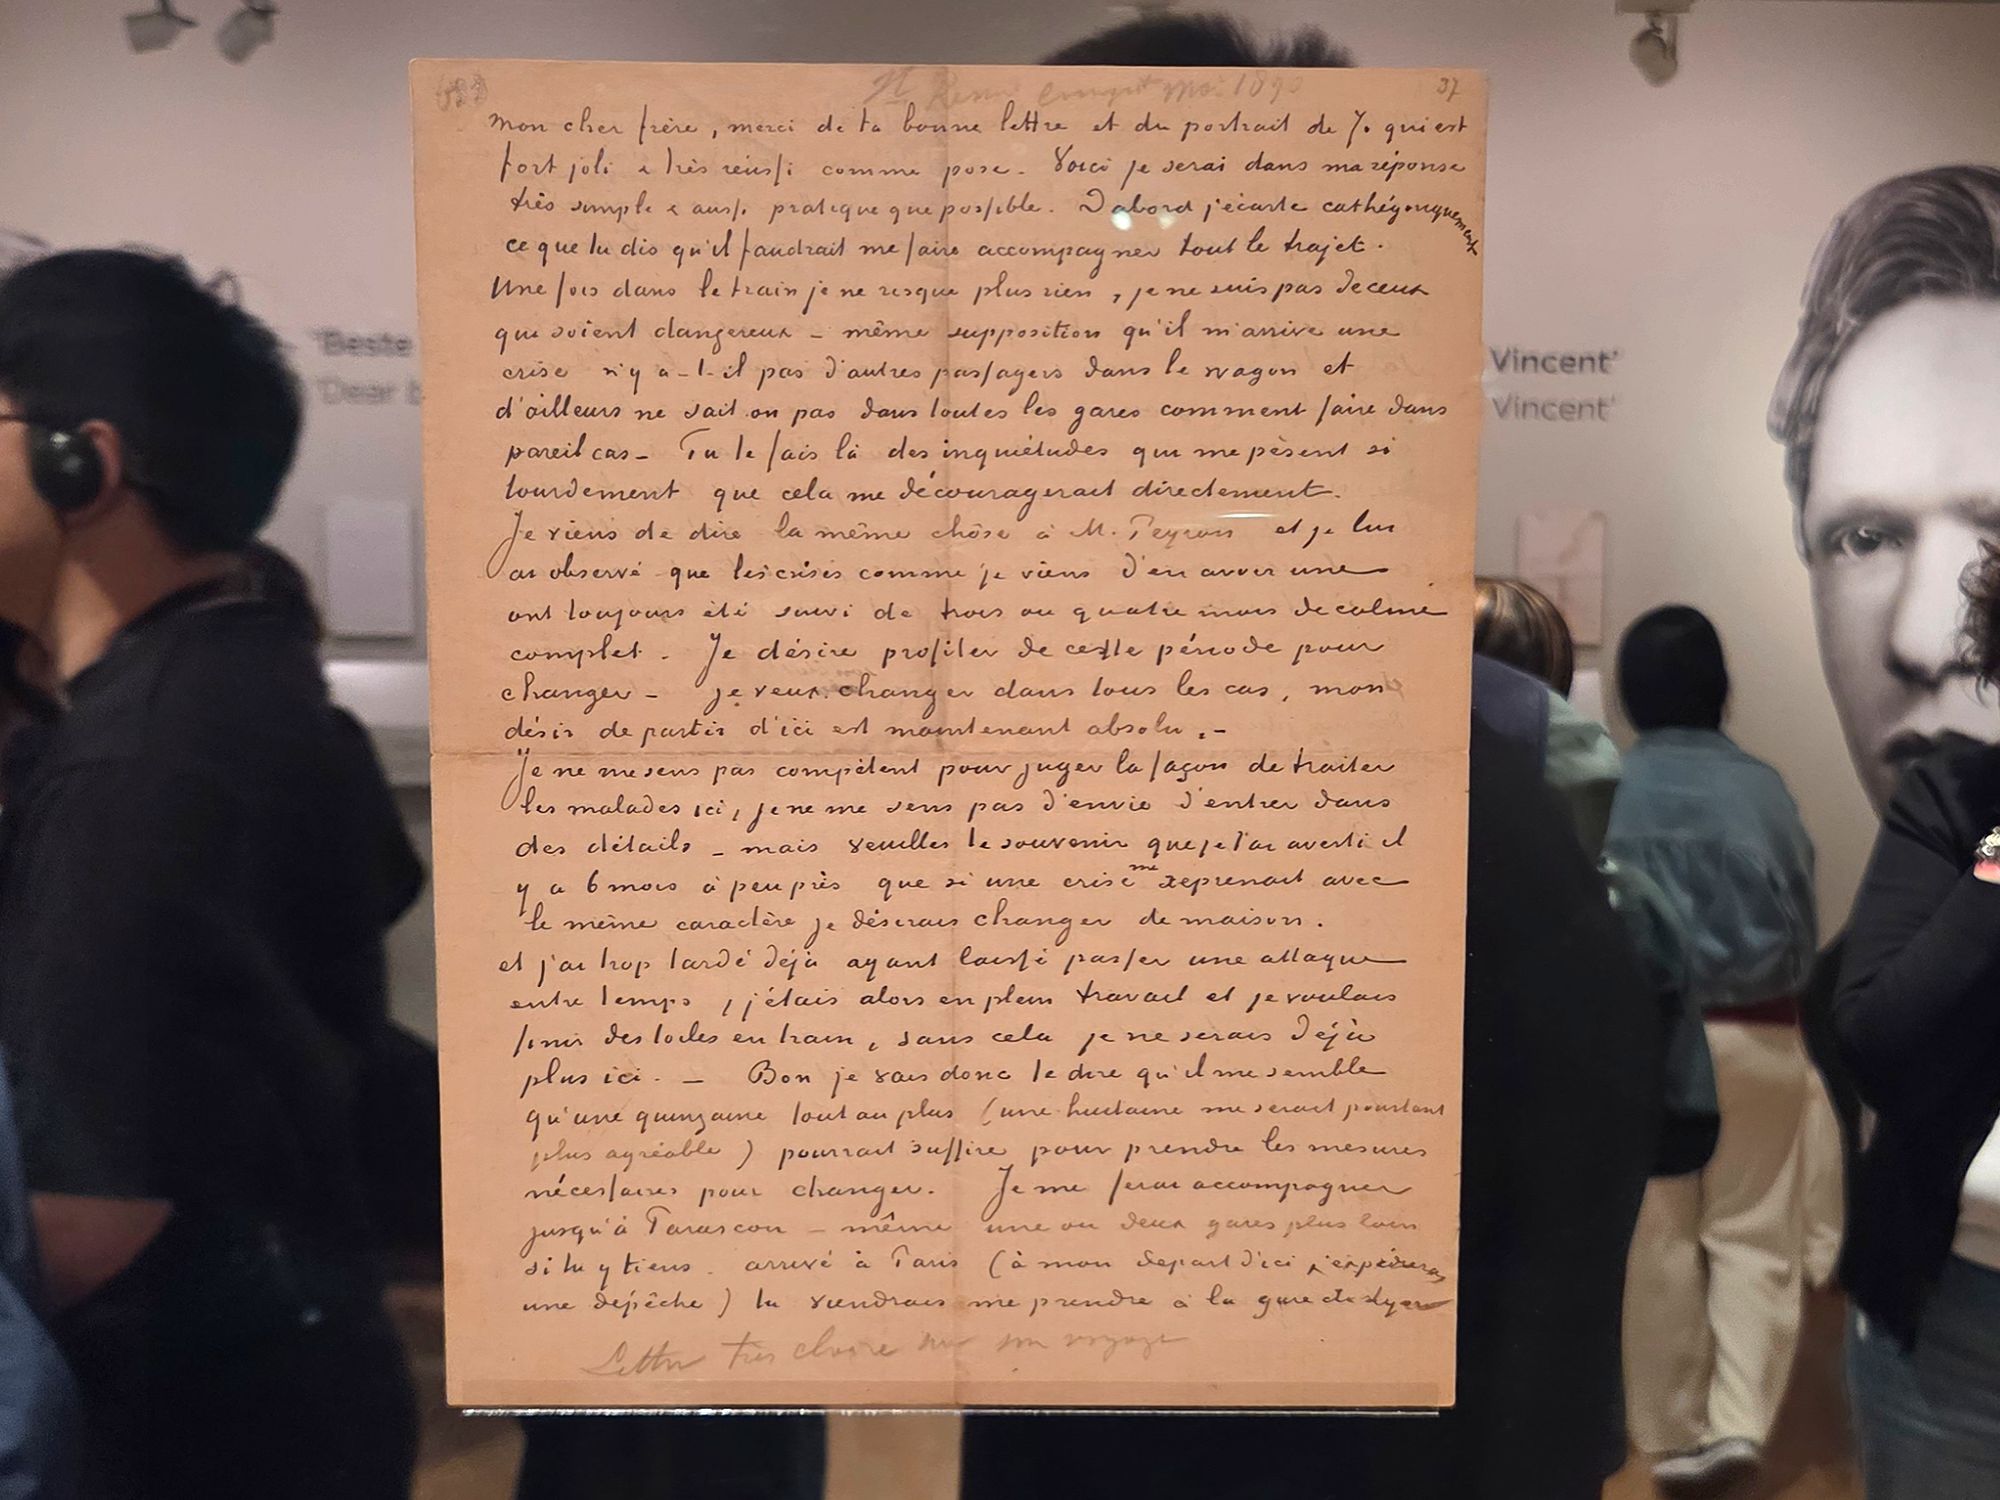 St Remy mai 1890
37
Mon cher frère, merci de ta bonne lettre et du portrait de Jo qui est
fort joli & très réussi comme pose. Voici je serai dans ma réponse
très simple & aussi pratique que possible. D'abord j'écarte cathégoriquement
ce que tu dis qu'il faudrait me faire accompagner tout le trajet.
Une fois dans le train je ne risque plus rien, je ne suis pas de ceux
qui soient dangereux – même supposition qu'il m'arrive une
crise n'y a-t-il pas d'autres passagers dans le wagon et
d'ailleurs ne sait on pas dans toutes les gares comment faire dans
pareil cas – Tu te fais là des inquiétudes qui me pèsent si
lourdement que cela me découragerait directement.
Je viens de dire la même chôse à M. Peyron et je lui
ai observé que les crises comme je viens d'en avoir une
ont toujours été suivi de trois ou quatre mois de calme
complet – Je désire profiter de cette période pour
changer – je veux changer dans tous les cas, mon
désir de partir d'ici est maintenant absolu. –
Je ne me sens pas compétent pour juger la façon de traiter
les malades ici, je ne me sens pas d'envie d'entrer dans
des détails – mais veuilles te souvenir que je t'ai averti il
y a 6 mois à peu près que si une crise me reprenait avec
le même caractère je désirais changer de maison.
et j'ai trop tardé déjà ayant laissé passer une attaque
entre temps, j'étais alors en plein travail et je voulais
finir des toiles en train, sans cela je ne serais déjà
plus ici. – Bon je vais donc te dire qu'il me semble
qu'une quinzaine tout au plus (une huitaine me serait pourtant
plus agréable) pourrait suffire pour prendre les mesures
nécessaires pour changer. Je me ferai accompagner
jusqu'à Tarascon – même une ou deux gares plus loin
si tu y tiens. arrivé à Paris (à mon depart d'ici j'expédierai
une dépêche) tu viendrais me prendre à la gare de Lyon
Lettre très claire sur son voyage
'Beste
'Dear
Vincent'
Vincent'